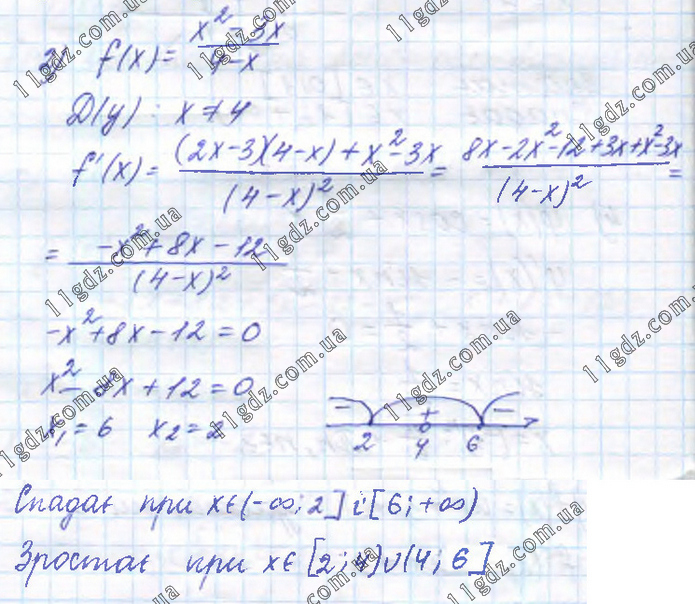 3) f(x) = (x² - 3x)/(4 - x)
D(y): x ≠ 4
f'(x) = ((2x-3)(4-x) + x² - 3x)/((4-x)²) = (8x - 2x² - 12 + 3x + x² - 3x)/((4-x)²) =
= (-x² + 8x - 12)/((4-x)²)
-x² + 8x - 12 = 0
x² - 8x + 12 = 0
x₁ = 6 x₂ = 2
- + -
2 4 6
Спадає при x∈(-∞; 2] і [6; +∞)
Зростає при x∈[2; 4)∪(4; 6]
11gdz.com.ua